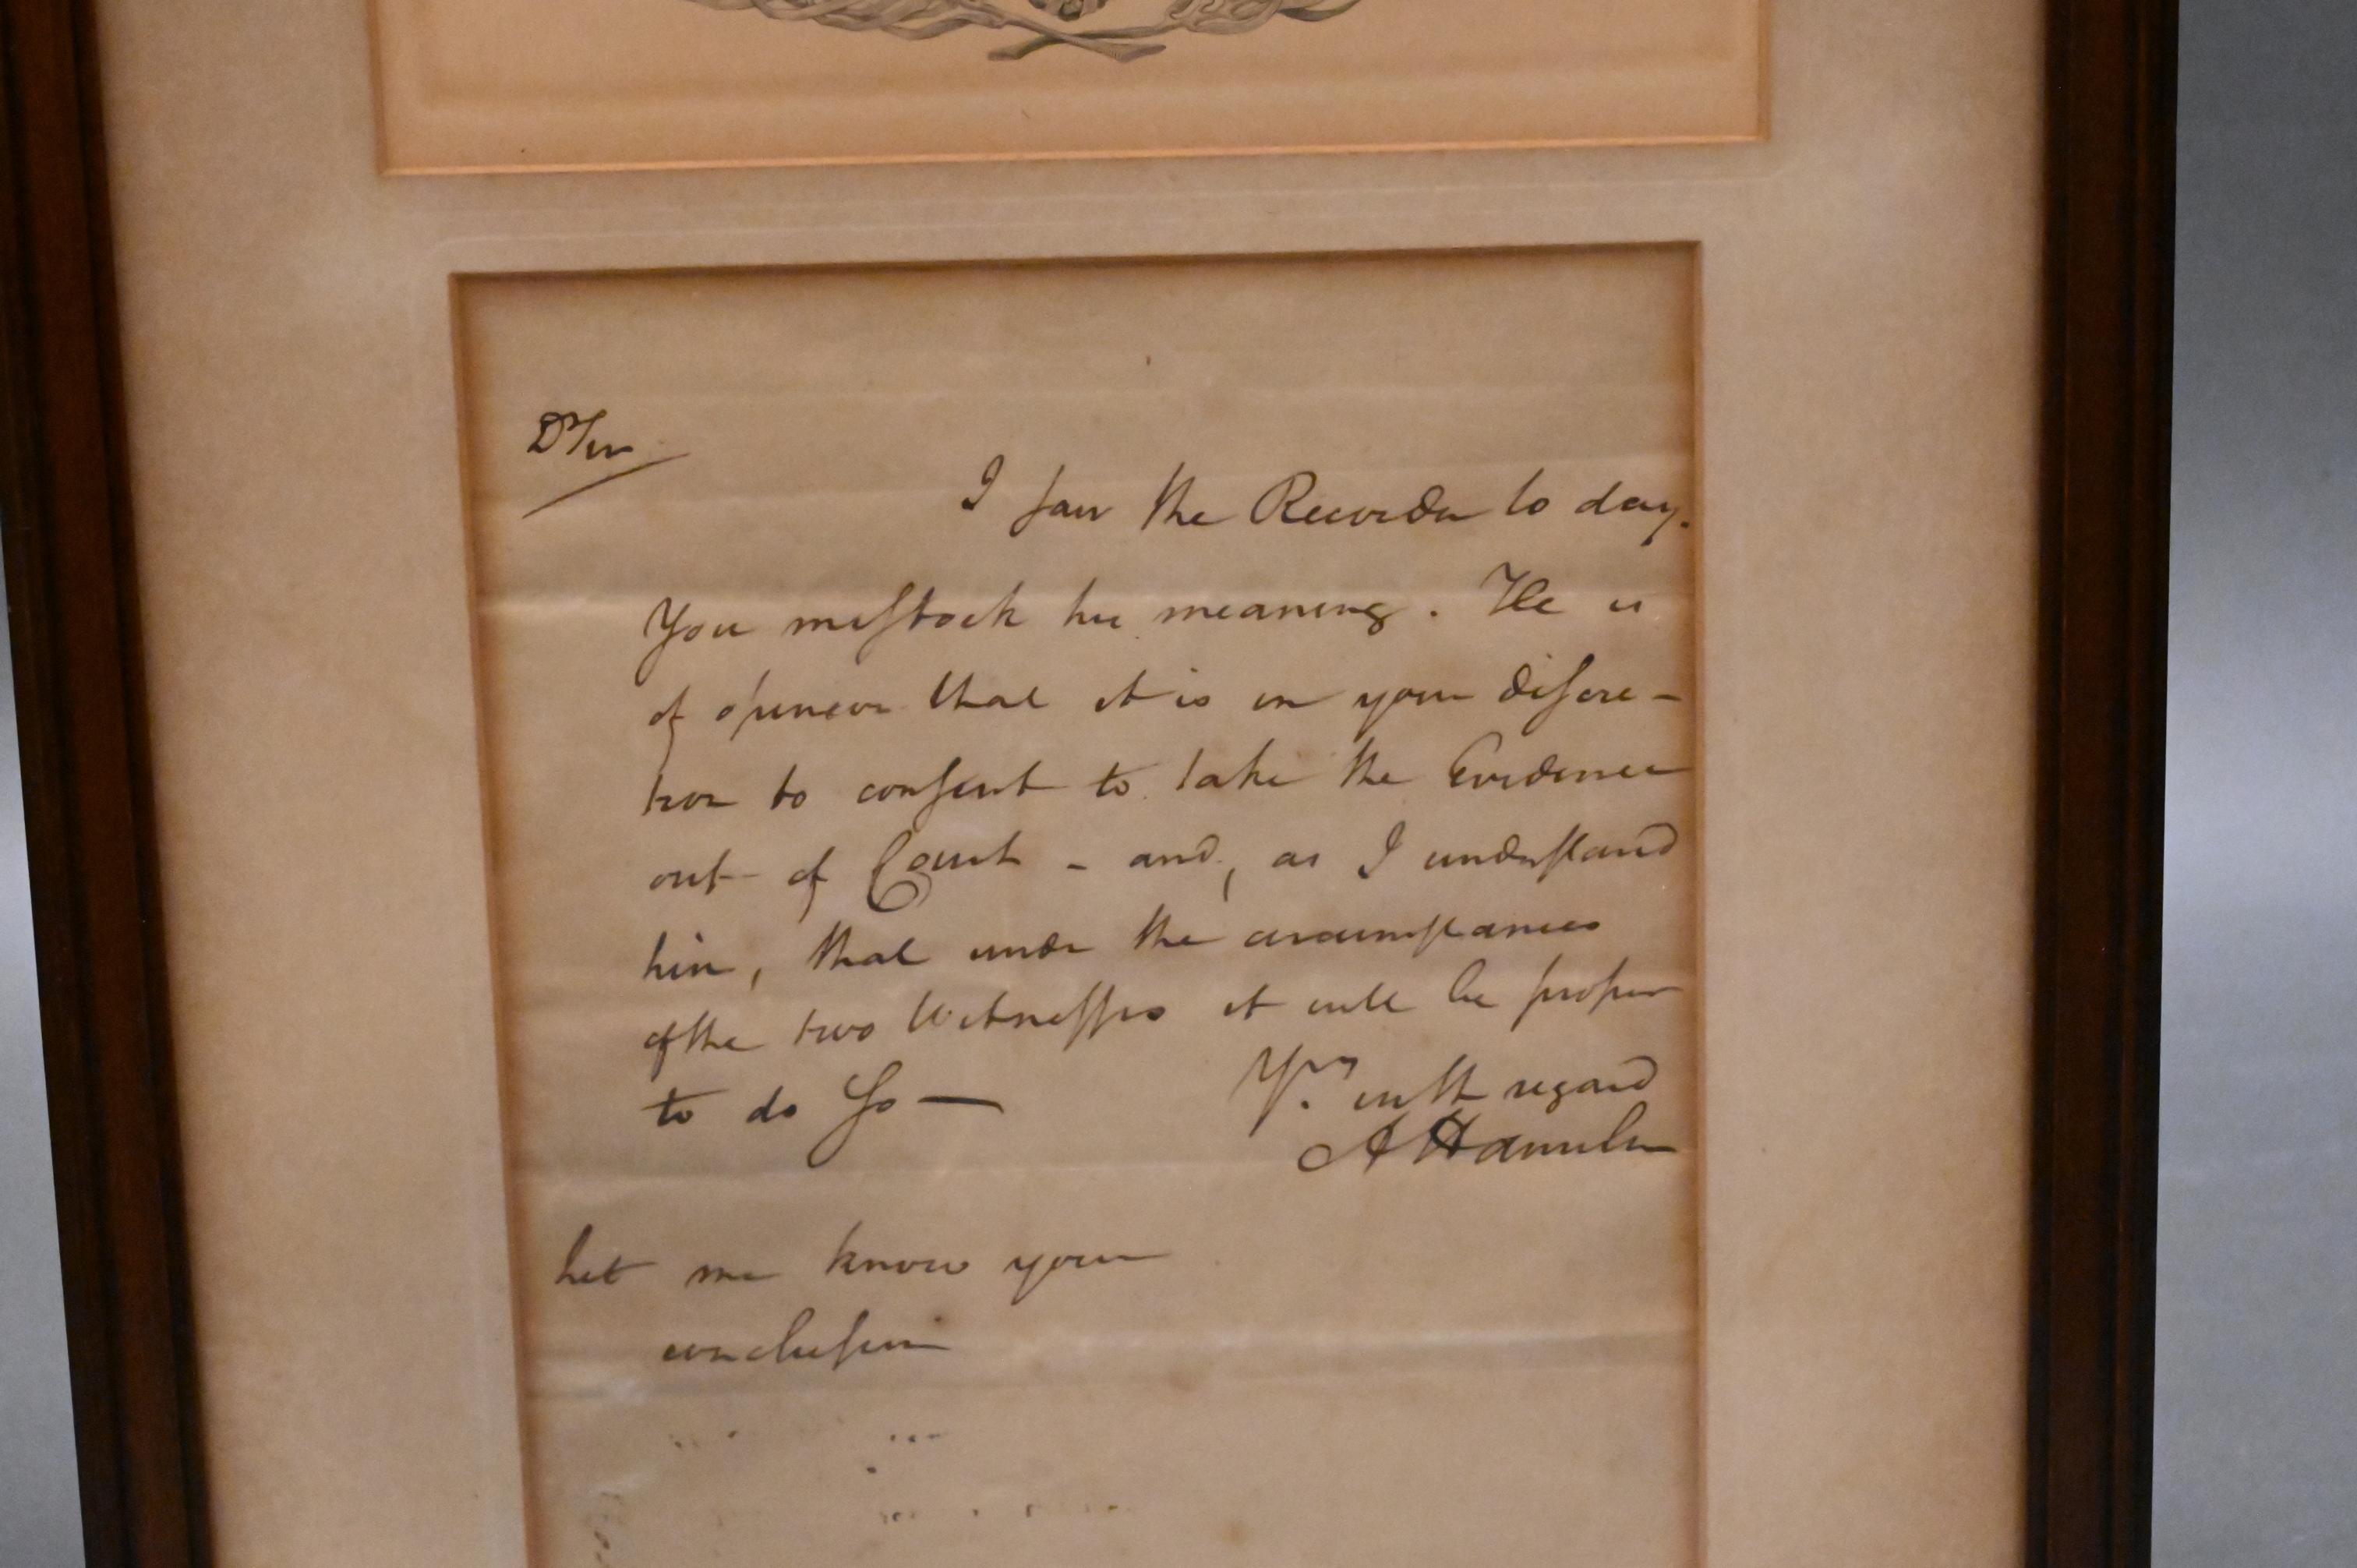 Dr Sir
I saw the Recorder to day.
You misstook his meaning. He is
of opinion that it is in your discre-
tion to consent to take the Evidence
out of Court - and, as I understand
him, that under the circumstances
of the two Witnesses it will be proper
to do so —
Yrs. with regard
A Hamilton
Let me know your
conclusion